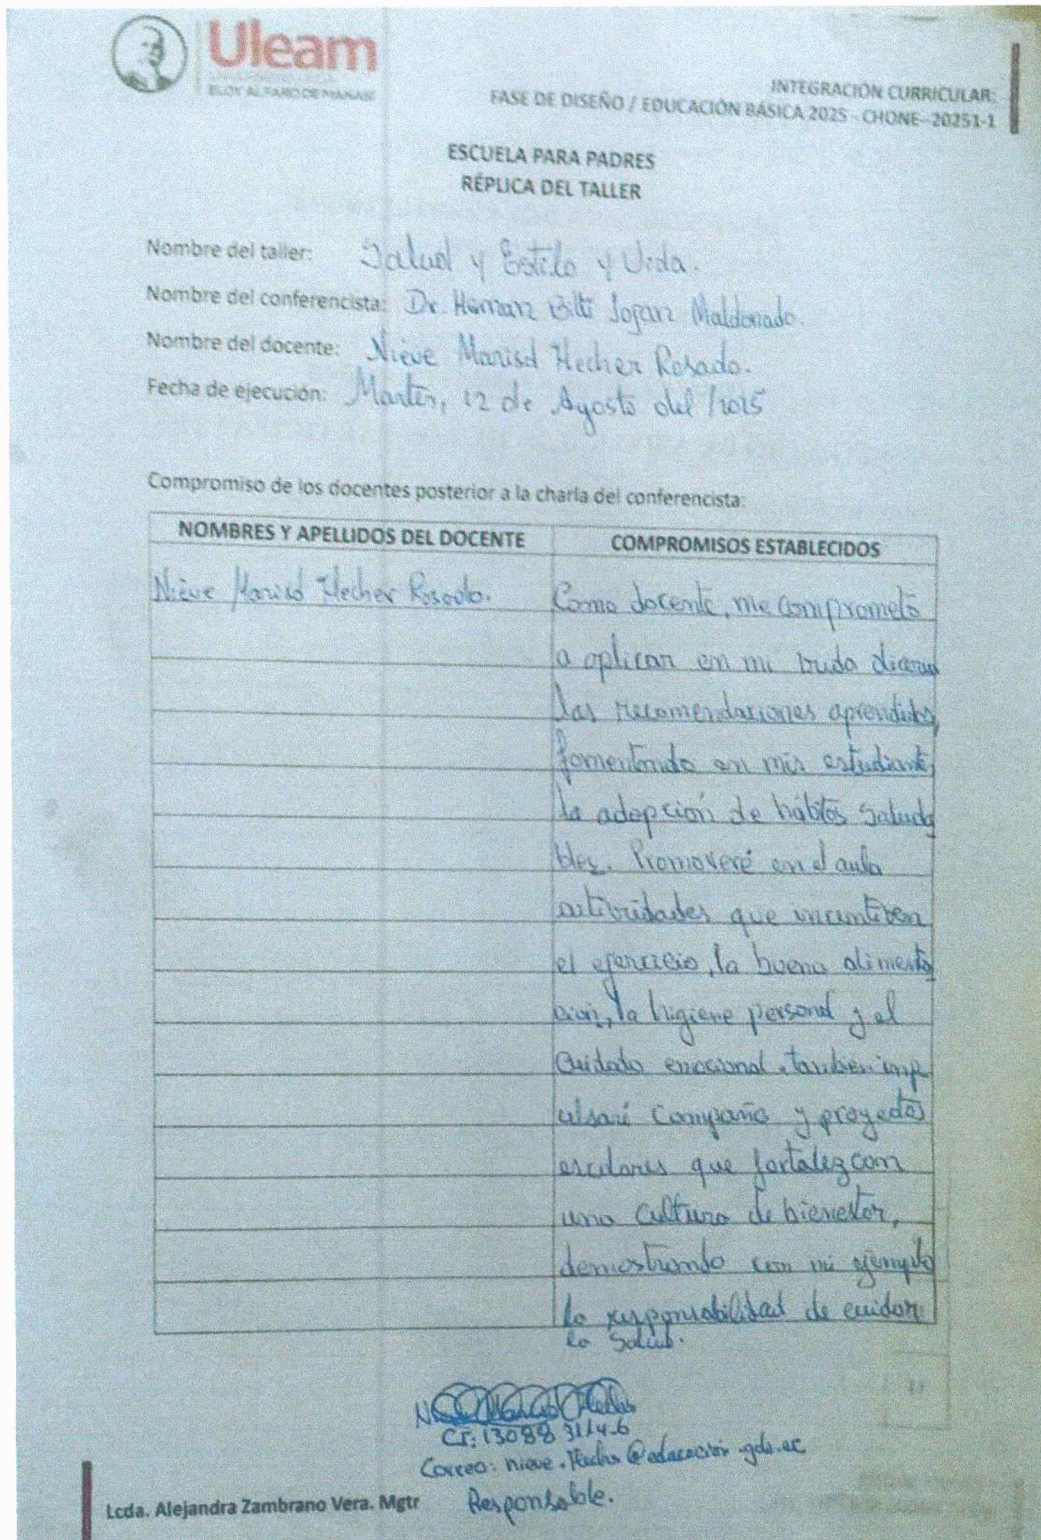 Uleam
ELOY ALFARO DE MANABÍ
INTEGRACIÓN CURRICULAR:
FASE DE DISEÑO / EDUCACIÓN BÁSICA 2025 - CHONE--20251-1
ESCUELA PARA PADRES
RÉPLICA DEL TALLER
Nombre del taller: Salud y Estilo y Vida.
Nombre del conferencista: Dr. Hernan Maldonado.
Nombre del docente: Nieve Marisol Hecher Rosado.
Fecha de ejecución: Martes, 12 de Agosto del /2025
Compromiso de los docentes posterior a la charla del conferencista:
NOMBRES Y APELLIDOS DEL DOCENTE COMPROMISOS ESTABLECIDOS
Nieve Marisol Hecher Rosado. Como docente, me comprometo
a aplicar en mi vida diaria
las recomendaciones aprendidas,
fomentando en mis estudiantes
la adopción de hábitos saluda
bles. Promoveré en el aula
actividades que incentiven
el ejercicio, la buena alimenta
ción, la higiene personal y el
cuidado emocional, también imp
ulsaré campaña y proyectos
escolares que fortalezcan
una cultura de bienestar,
demostrando con mi ejemplo
la responsabilidad de cuidar
la salud.
Correo: nieve.
Responsable.
Lcda. Alejandra Zambrano Vera. Mgtr